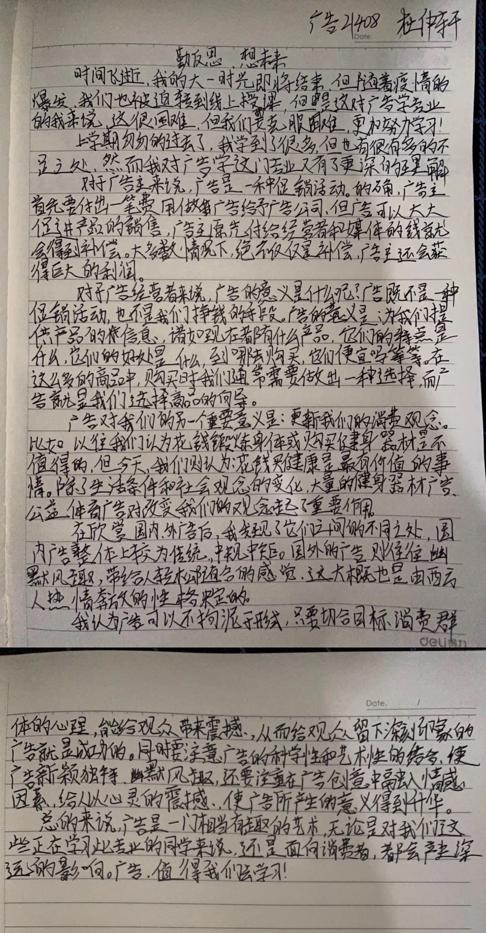 广告21408 杜仲轩
Date.
勤反思 想未来
时间飞逝，我的大一时光即将结束，但随着疫情的
爆发，我们也被迫转到线上授课，但是这对广告学专业
的我来说，这很困难，但我们要克服困难，更加努力学习！
上学期匆匆的过去了，我学到了很多，但也有很多的不
足之处，然而我对广告学这门专业又有了更深的理解
对于广告主来说，广告是一种促销活动，的确，广告主
首先要付出一笔费用做广告给予广告公司，但广告可以大大
促进产品的销售，广告主原先付给经营者和媒体的钱就
会得到补偿。大多数情况下，绝不仅仅是补偿，广告主还会获
得巨大的利润。
对于广告经营者来说，广告的意义是什么呢？广告既不是一种
促销活动，也不是我们挣钱的手段，广告的意义是：为我们提
供产品的信息，诸如现在都有什么产品，它们的特点是
什么，它们的好处是什么，到哪去购买，他们便宜吗等等。在
这么多的商品中，购买时我们通常需要做出一种选择，而广
告就是我们选择商品的向导。
广告对我们的另一个重要意义是：更新我们的消费观念。
比如以往我们认为花钱锻炼身体或购买健身器材是不
值得的，但今天，我们则认为：花钱买健康是最有价值的事
情。除了生活条件和社会观念的变化，大量的健身器材广告、
公益体育广告对改变我们的观念起了重要作用
在欣赏国内外广告后，我发现了它们之间的不同之处，国
内广告整体上较为传统，中规中矩。国外的广告则往往幽
默风趣，带给人轻松都适合的感觉，这大概也是由西方
人热情奔放的性格决定的。
我认为广告可以不拘泥于形式，只要切合目标消费群
deli
Date. /
体的心理，能给观众带来震撼，从而给观众留下深刻印象的
广告就是成功的。同时要注意广告的科学性和艺术性的结合，使
广告新颖独特、幽默风趣，还要注重在广告创意中融入情感
因素，给人以心灵的震撼，使广告所产生的意义得到升华。
总的来说，广告是一门相当有趣的艺术，无论是对我们这
些正在学习此专业的同学来说，还是面向消费者，都会产生深
远的影响。广告，值得我们去学习！